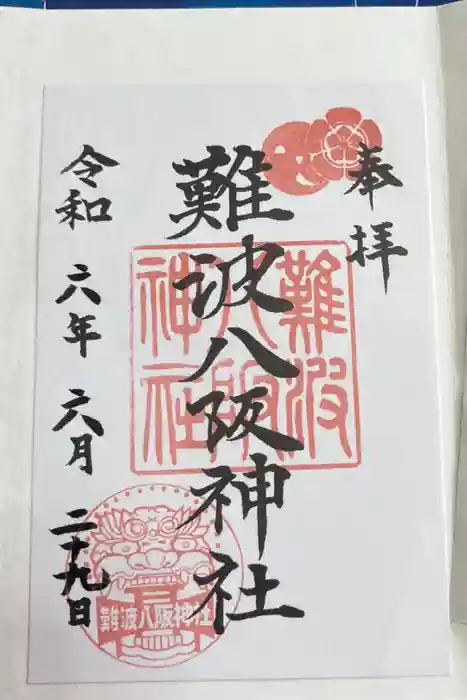 奉拝
難波八阪神社
難波
八阪
神社
令和 六年 六月 二十九日
難波八阪神社